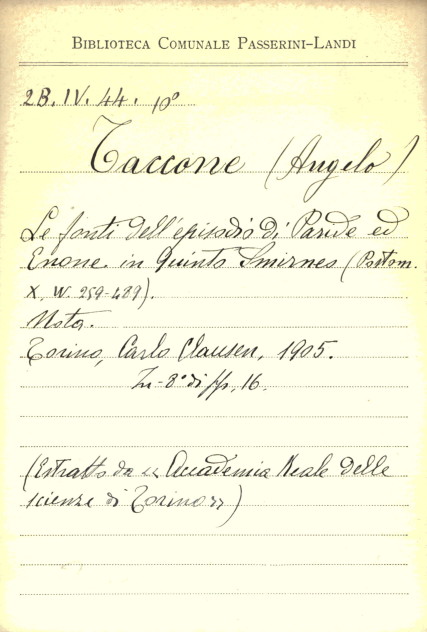 BIBLIOTECA COMUNALE PASSERINI-LANDI
2B. IV. 44. 10°
Taccone (Angelo)
Le fonti dell'episodio di Paride ed
Enone in Quinto Smirnes (Postom.
X, vv. 259-489).
Nota.
Torino, Carlo Clausen, 1905.
In-8° di pp. 16.
(Estratto da « Accademia Reale delle
scienze di Torino »)